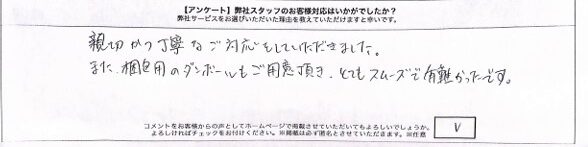 【アンケート】弊社スタッフのお客様対応はいかがでしたか?
弊社サービスをお選びいただいた理由を教えていただけますと幸いです。
親切かつ丁寧なご対応をしていただきました。
また、梱包用のダンボールもご用意頂き、とてもスムーズで有難かったです。
コメントをお客様からの声としてホームページで掲載させていただいてもよろしいでしょうか。
よろしければチェックをお付けください。※掲載は必ず匿名とさせていただきます。※任意
V